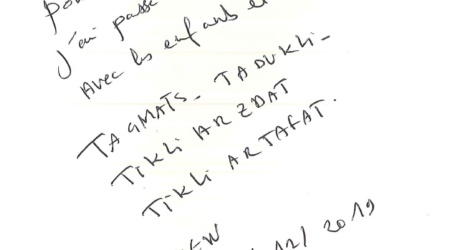 J'ai passé
avec les enfants et
TAGMATS_ TADUKLI_
TIKLI AR ZDAT
TIKLI AR TAFAT.
12/ 2019